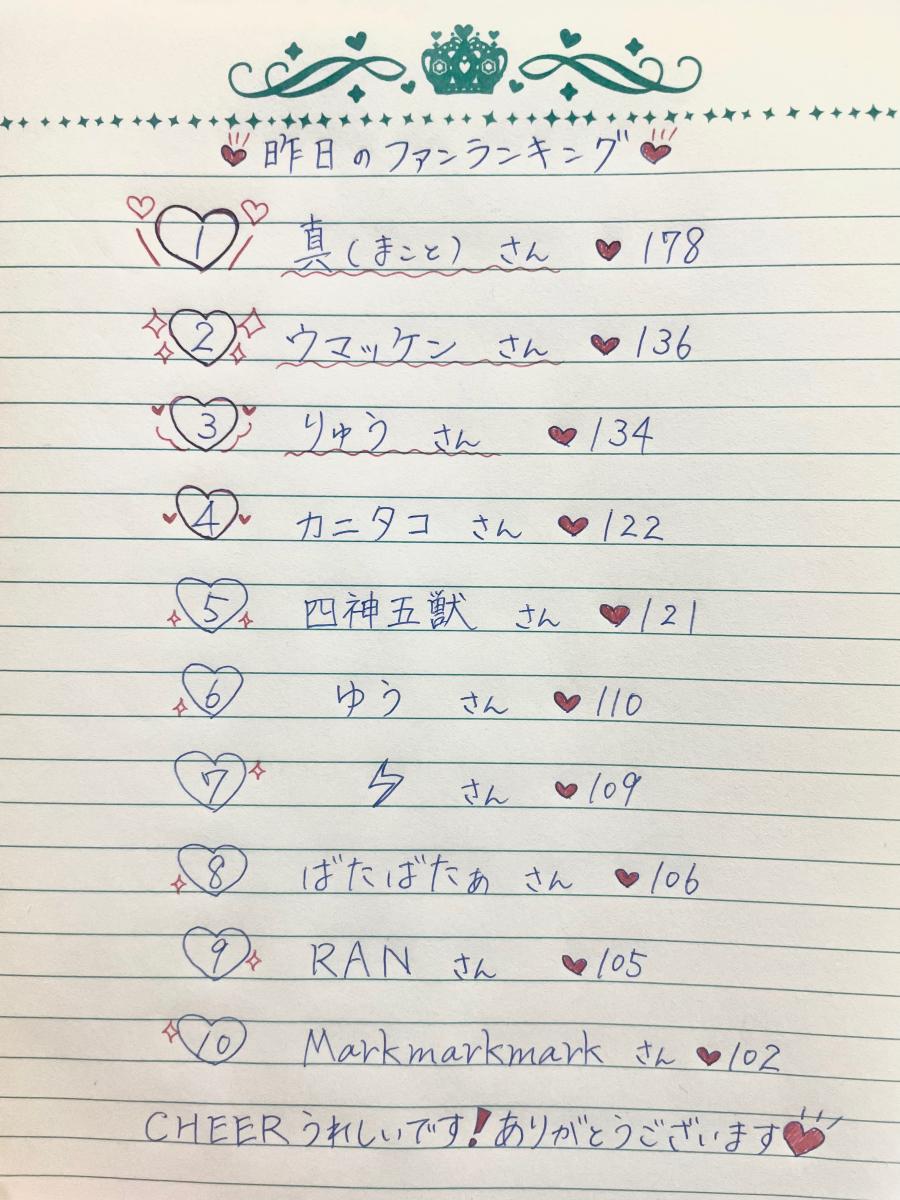 昨日のファンランキング
1 真(まこと) さん ♥178
2 ウマッケン さん ♥136
3 りゅう さん ♥134
4 カニタコ さん ♥122
5 四神五獣 さん ♥121
6 ゆう さん ♥110
7 ⚡ さん ♥109
8 ばたばたぁ さん ♥106
9 RAN さん ♥105
10 Markmarkmark さん ♥102
CHEERうれしいです!ありがとうございます♥